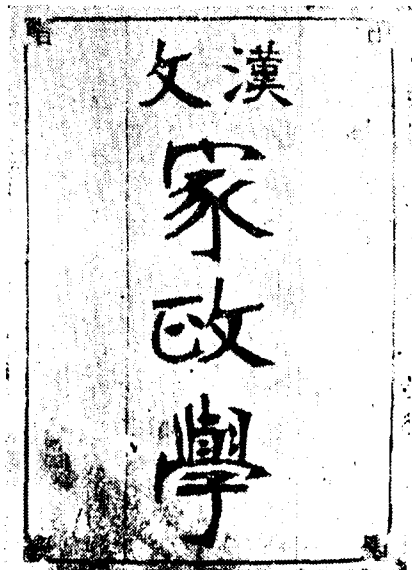 漢文
家政學